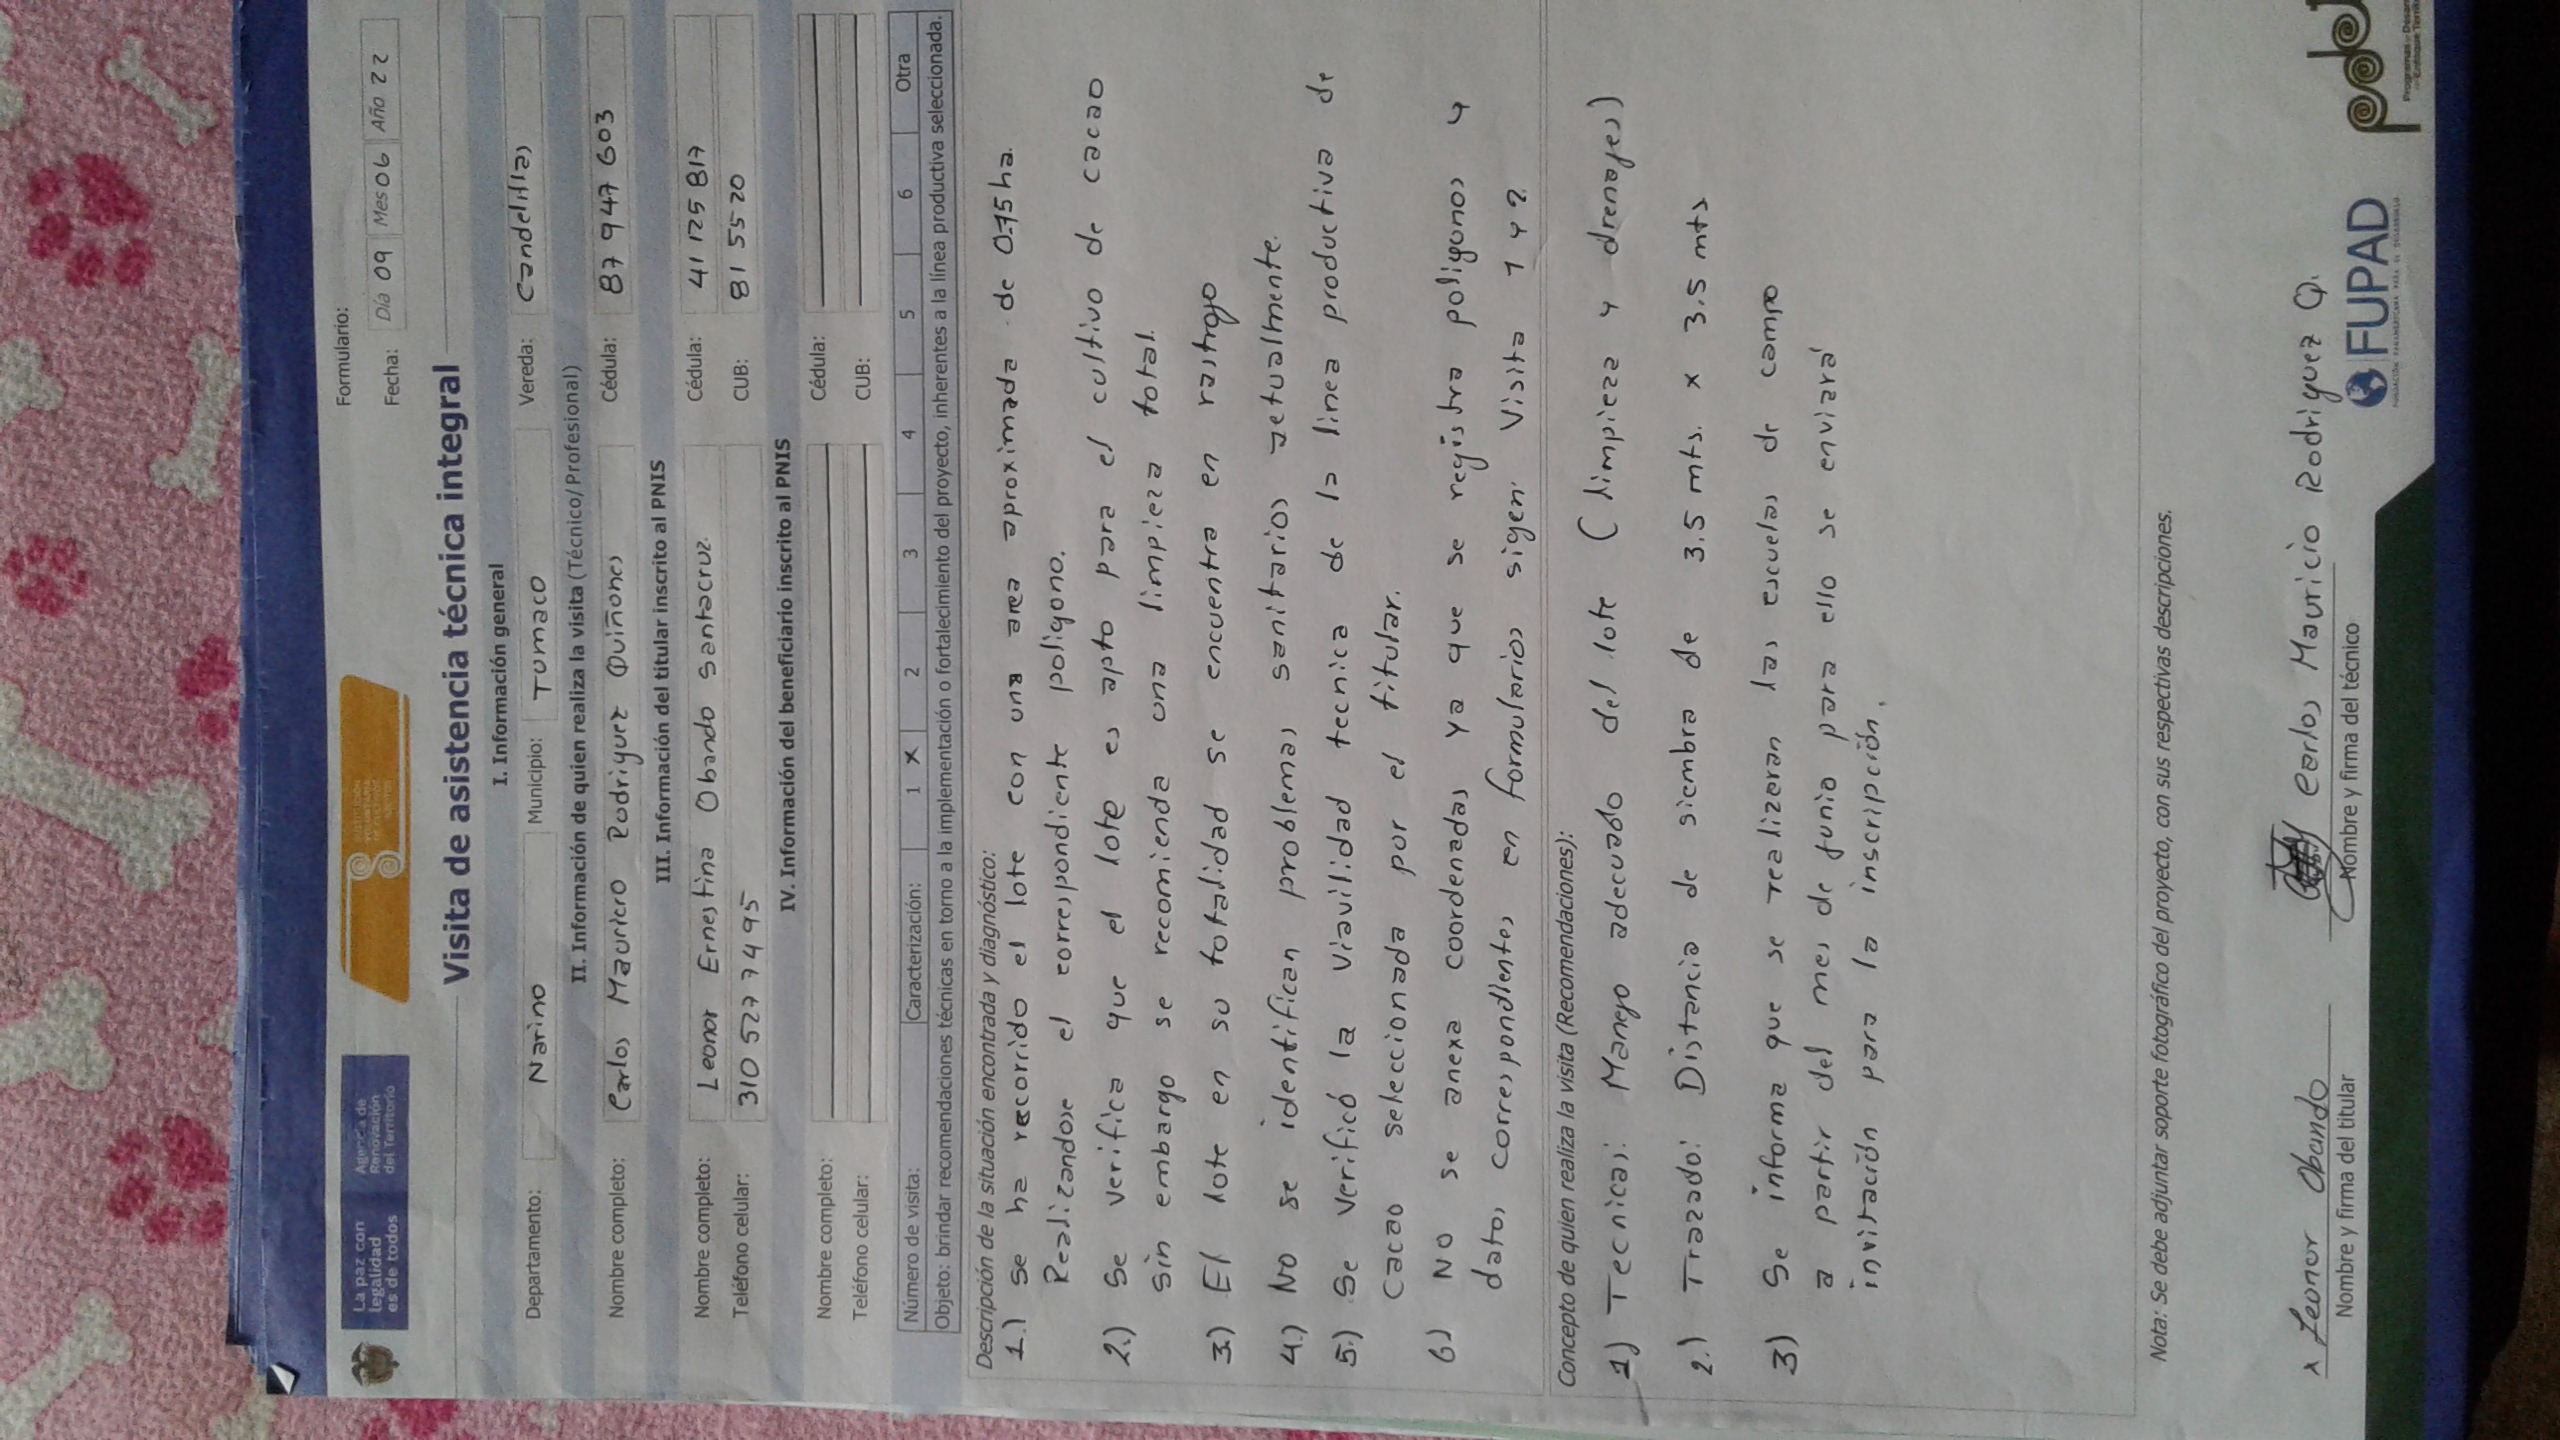 La paz con
legalidad
es de todos
Agencia de
Renovación
del Territorio
Formulario:
Fecha: Día 09 Mes 06 Año 22
Visita de asistencia técnica integral
I. Información general
Departamento: Narino Municipio: Tumaco Vereda: Candelillas
II. Información de quien realiza la visita (Técnico/Profesional)
Nombre completo: Carlos Mauricio Rodriguez Quiñones Cédula: 87 947 603
III. Información del titular inscrito al PNIS
Nombre completo: Leonor Ernestina Obando santacruz. Cédula: 41 125 817
Teléfono celular: 310 527 7495 CUB: 81 55 20
IV. Información del beneficiario inscrito al PNIS
Nombre completo: Cédula:
Teléfono celular: CUB:
Número de visita: Caracterización: 1 X 2 3 4 5 6 Otra
Objeto: brindar recomendaciones técnicas en torno a la implementación o fortalecimiento del proyecto, inherentes a la línea productiva seleccionada.
Descripción de la situación encontrada y diagnóstico:
1.) se ha recorrido el lote con una area aproximada de 0.75 ha.
Realizandose el correspondiente poligono.
2.) Se verifica que el lote es apto para el cultivo de cacao
sin embargo se recomienda una limpieza total.
3.) El lote en su totalidad se encuentra en rastrojo
4.) No se identifican problemas sanitarios actualmente.
5.) Se verificó la viavilidad tecnica de la linea productiva de
Cacao seleccionada por el titular.
6) No se anexa coordenadas ya que se registra poligonos y
datos correspondientes en formularios sigen: Visita 1 y 2
Concepto de quien realiza la visita (Recomendaciones):
1) Tecnicas: Manejo adecuado del lote (limpieza y drenajes)
2.) Trazado: Distancia de siembra de 3.5 mts. x 3.5 mts
3) Se informa que se realizaran las escuelas de campo
a partir del mes de junio para ello se enviará
invitación para la inscripción.
Nota: Se debe adjuntar soporte fotográfico del proyecto, con sus respectivas descripciones.
x Leonor Obando
Nombre y firma del titular
Carlos Mauricio Rodriguez Q.
Nombre y firma del técnico
FUPAD